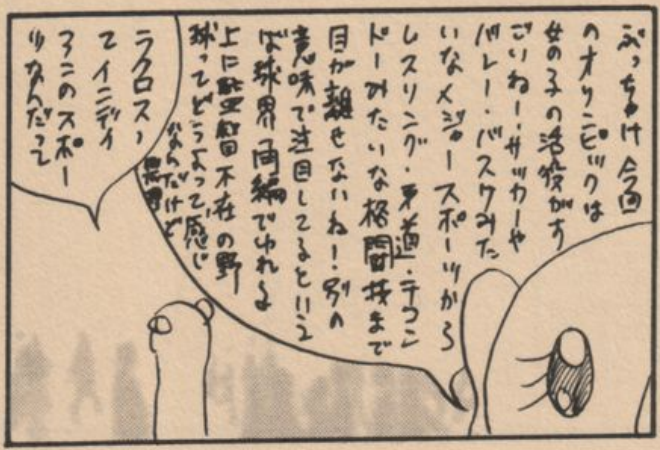 ぶっちゃけ今回
のオリンピックは
女の子の活躍がす
ごいねー・サッカーや
バレー・バスケみた
いなメジャースポーツから
レスリング・柔道・テコン
ドーみたいな格闘技まで
目が離せないね!別の
意味で注目してるという
ば球界再編でゆれる
上に監督不在の野
球ってどうよって感じ
なんだけど
ラクロスっ
てインディ
アンのスポー
ツなんだって